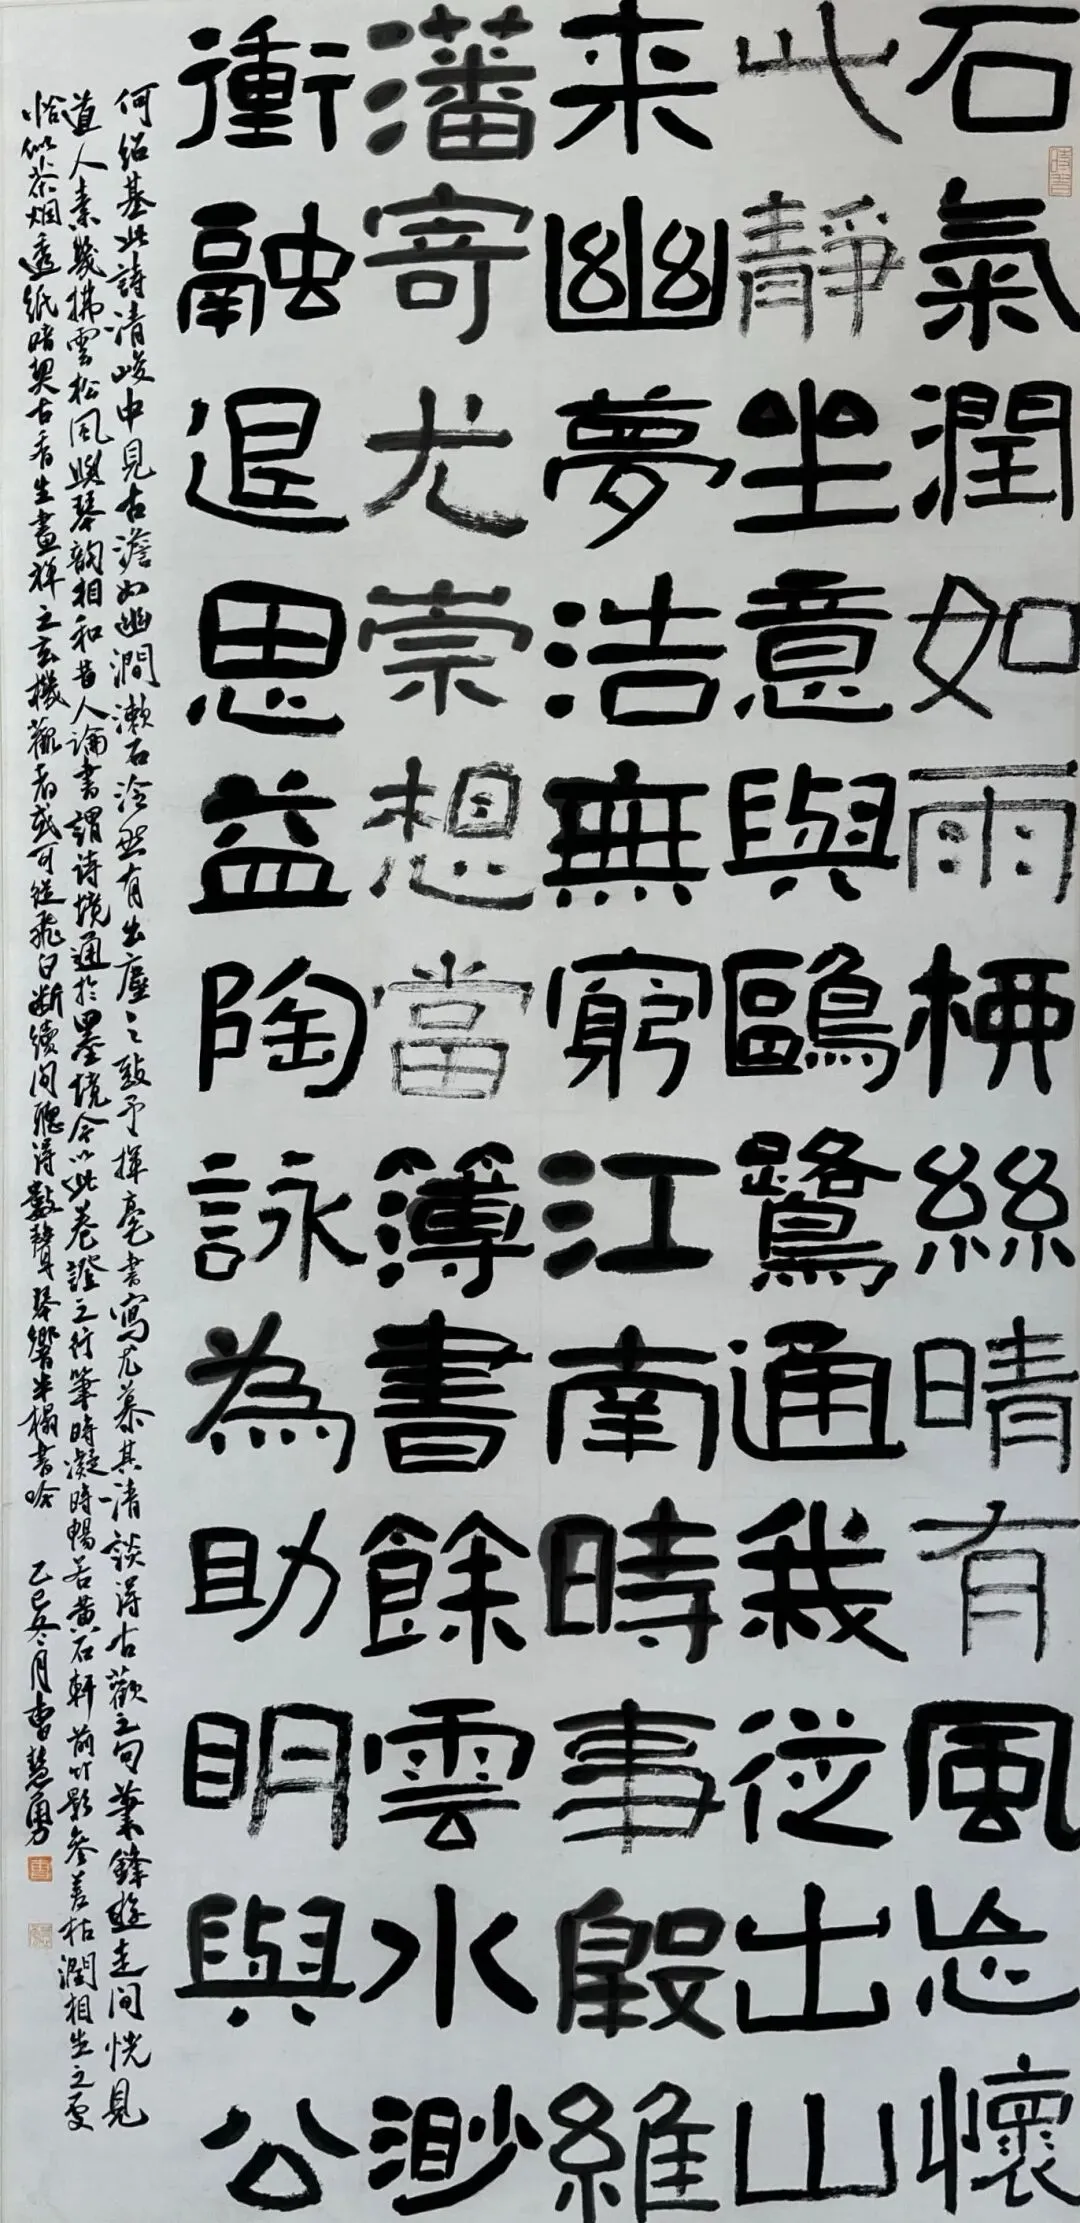 石氣潤如雨柳絲晴有風忘懷
此靜坐意與鷗鷺通我從出山
来幽夢浩無窮江南時事殷維
藩寄尤崇想當簿書餘雲水渺
衝融退思益陶詠為助明與公
何紹基此詩清峻中見古澹如幽澗漱石泠然有出塵之致予揮毫書寫尤慕其清談得古歡之句筆鋒遊走间恍見
道人素幾拂雲松風與琴韵相和昔人論書謂诗境通於墨境今以此卷證之行筆時凝時暢若黄石軒前竹影参差枯潤相生之處
恰似茶烟透紙暗契古香生畫禅之玄機觀者或可從飛白斷續间聽得數聲琴響半榻書吟 乙巳冬月曹慧勇